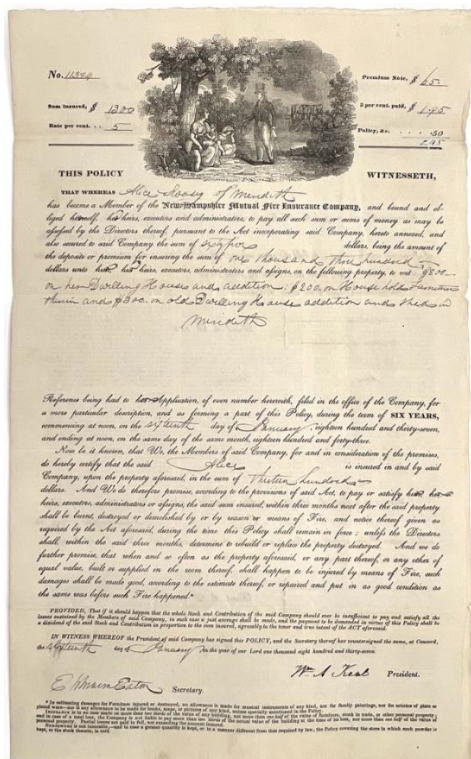 No. 11324
Sum insured, $ 1300
Rate per cent. . . 5
Premium Note, $ 65
3 per cent. paid, $ 1.95
Policy, &c. . . . . .50
2.45
THIS POLICY WITNESSETH,
THAT WHEREAS Alice of Meredith
has become a Member of the New-Hampshire Mutual Fire Insurance Company, and bound and ob-
liged herself, her heirs, executors and administrators, to pay all such sum or sums of money as may be
assessed by the Directors thereof, pursuant to the Act incorporating said Company, hereto annexed, and
also secured to said Company the sum of sixty five dollars, being the amount of
the deposite or premium for ensuring the sum of one thousand three hundred
dollars unto her heirs, executors, administrators and assigns, on the following property, to wit: $800
on her Dwelling House and addition $200. on House hold Furniture
therein and $300. on old Dwelling House addition and Shed in
Meredith
Reference being had to her Application, of even number herewith, filed in the office of the Company, for
a more particular description, and as forming a part of this Policy, during the term of SIX YEARS,
commencing at noon, on the sixteenth day of January, eighteen hundred and thirty-seven,
and ending at noon, on the same day of the same month, eighteen hundred and forty-three.
Now be it known, that We, the Members of said Company, for and in consideration of the premises,
do hereby certify that the said Alice is insured in and by said
Company, upon the property aforesaid, in the sum of Thirteen hundred
dollars. And We do therefore promise, according to the provisions of said Act, to pay or satisfy her
heirs, executors, administrators or assigns, the said sum insured, within three months next after the said property
shall be burnt, destroyed or demolished by or by reason or means of Fire, and notice thereof given as
required by the Act aforesaid, during the time this Policy shall remain in force; unless the Directors
shall, within the said three months, determine to rebuild or replace the property destroyed. And we do
further promise, that when and as often as the property aforesaid, or any part thereof, or any other of
equal value, built or supplied in the room thereof, shall happen to be injured by means of Fire, such
damages shall be made good, according to the estimate thereof, or repaired and put in as good condition as
the same was before such Fire happened.*
PROVIDED, That if it should happen that the whole Stock and Contribution of the said Company should ever be insufficient to pay and satisfy all the
losses sustained by the Members of said Company, in such case a just average shall be made, and the payment to be demanded in virtue of this Policy shall be
a dividend of the said Stock and Contribution in proportion to the sum insured, agreeably to the tenor and true intent of the ACT aforesaid.
IN WITNESS WHEREOF the President of said Company has signed this POLICY, and the Secretary thereof has countersigned the same, at Concord,
on sixteenth day of January in the year of our Lord one thousand eight hundred and thirty-seven.
Wm. A. Kent President.
Secretary.
* In estimating damages for Furniture injured or destroyed, no allowance is made for musical instruments of any kind, nor for family paintings, nor the articles of plate or